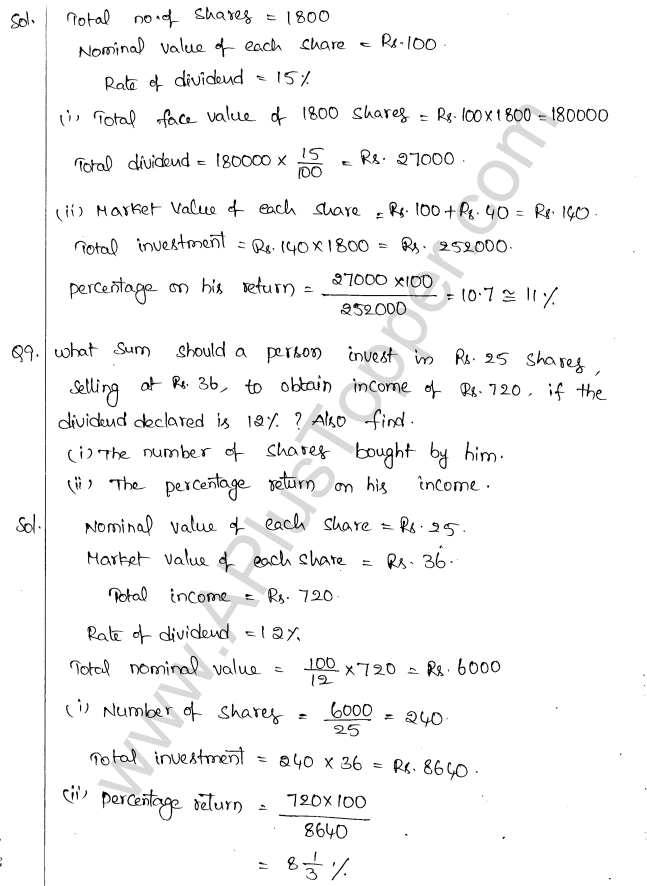 Sol. Total no. of shares = 1800
Nominal value of each share = Rs.100.
Rate of dividend = 15%
(i) Total face value of 1800 shares = Rs.100×1800 = 180000
Total dividend = 180000 × 15/100 = Rs. 27000.
(ii) Market Value of each share = Rs. 100 + Rs. 40 = Rs. 140.
Total investment = Rs. 140 × 1800 = Rs. 252000.
percentage on his return = 27000 ×100 / 252000 = 10.7 ≅ 11%
Q9. What sum should a person invest in Rs. 25 shares,
selling at Rs. 36, to obtain income of Rs. 720, if the
dividend declared is 12% ? Also find.
(i) The number of shares bought by him.
(ii) The percentage return on his income.
Sol. Nominal value of each share = Rs. 25.
Market value of each share = Rs. 36.
Total income = Rs. 720.
Rate of dividend = 12%
Total nominal value = 100/12 × 720 = Rs. 6000
(i) Number of shares = 6000/25 = 240.
Total investment = 240 × 36 = Rs. 8640.
(ii) percentage return = 720×100 / 8640
= 8 1/3 %
www.APlusTopper.com